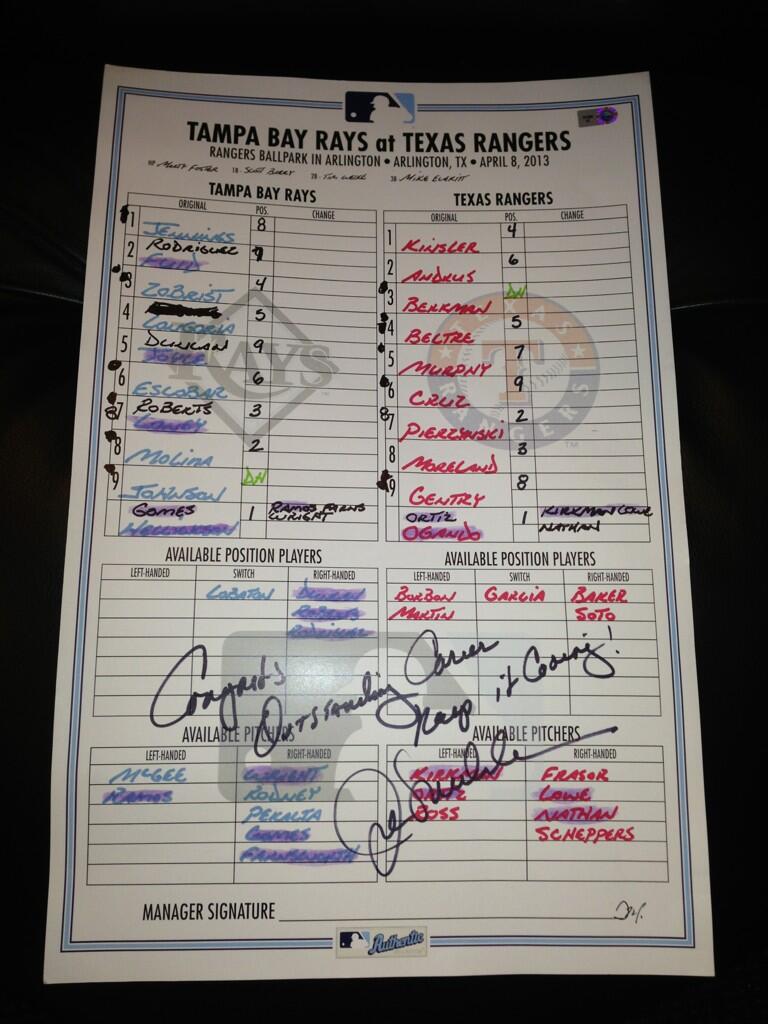 TAMPA BAY RAYS at TEXAS RANGERS
RANGERS BALLPARK IN ARLINGTON • ARLINGTON, TX • APRIL 8, 2013
HP - MARTY FOSTER 1B - SCOTT BARRY 2B - TIM WELKE 3B - MIKE EVERITT
TAMPA BAY RAYS
ORIGINAL POS. CHANGE
1 JENNINGS 8
2 RODRIGUEZ 7
FULD
3 ZOBRIST 4
4 LONGORIA 5
5 DUNCAN 9
JOYCE
6 ESCOBAR 6
7 ROBERTS 3
LONEY
8 MOLINA 2
9 JOHNSON DH
GOMES 1 RAMOS FARNS
HELLICKSON WRIGHT
TEXAS RANGERS
ORIGINAL POS. CHANGE
1 KINSLER 4
2 ANDRUS 6
3 BERKMAN DH
4 BELTRE 5
5 MURPHY 7
6 CRUZ 9
7 PIERZYNSKI 2
8 MORELAND 3
9 GENTRY 8
ORTIZ 1 KIRKMAN LOWE
OGANDO NATHAN
AVAILABLE POSITION PLAYERS
LEFT-HANDED SWITCH RIGHT-HANDED
LOBATON DUNCAN
ROBERTS
RODRIGUEZ
AVAILABLE POSITION PLAYERS
LEFT-HANDED SWITCH RIGHT-HANDED
BORBON GARCIA BAKER
MARTIN SOTO
Congrats
Outstanding Career
Keep it Going!
AVAILABLE PITCHERS
LEFT-HANDED RIGHT-HANDED
MCGEE WRIGHT
RAMOS RODNEY
PERALTA
GOMES
FARNSWORTH
AVAILABLE PITCHERS
LEFT-HANDED RIGHT-HANDED
KIRKMAN FRASOR
ORTIZ LOWE
ROSS NATHAN
SCHEPPERS
MANAGER SIGNATURE
Authentic
RAYS
TEXAS RANGERS
T